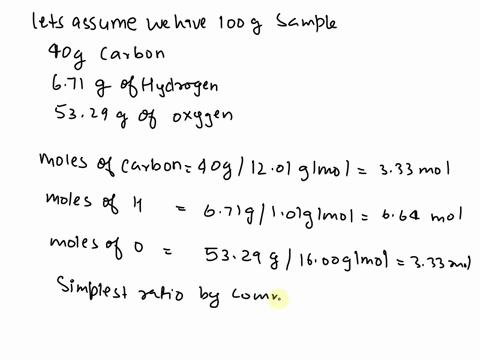 lets assume we have 100 g sample
40g Carbon
6.71 g of Hydrogen
53.29 g of oxygen
moles of carbon = 40g / 12.01 g/mol = 3.33 mol
moles of H = 6.71g / 1.01 g/mol = 6.64 mol
moles of O = 53.29 g / 16.00 g/mol = 3.33 mol
Simplest ratio by